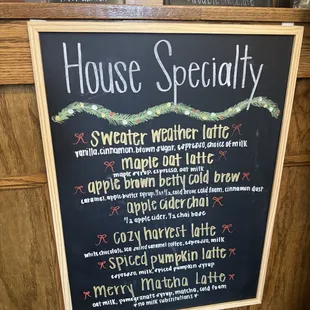 House Specialty
Sweater weather latte
vanilla, cinnamon, brown sugar, espresso, choice of milk
maple oat latte
maple syrup, espresso, oat milk
apple brown betty cold brew
caramel, apple butter syrup, cold brew cold foam, cinnamon dust
apple cider chai
1/2 apple cider, 1/2 chai base
cozy harvest latte
white chocolate, salted caramel coffee, espresso, milk
spiced pumpkin latte
espresso, milk, spiced pumpkin syrup
Merry Matcha Latte
oat milk, pomegranate syrup, matcha, cold foam
no milk substitutions